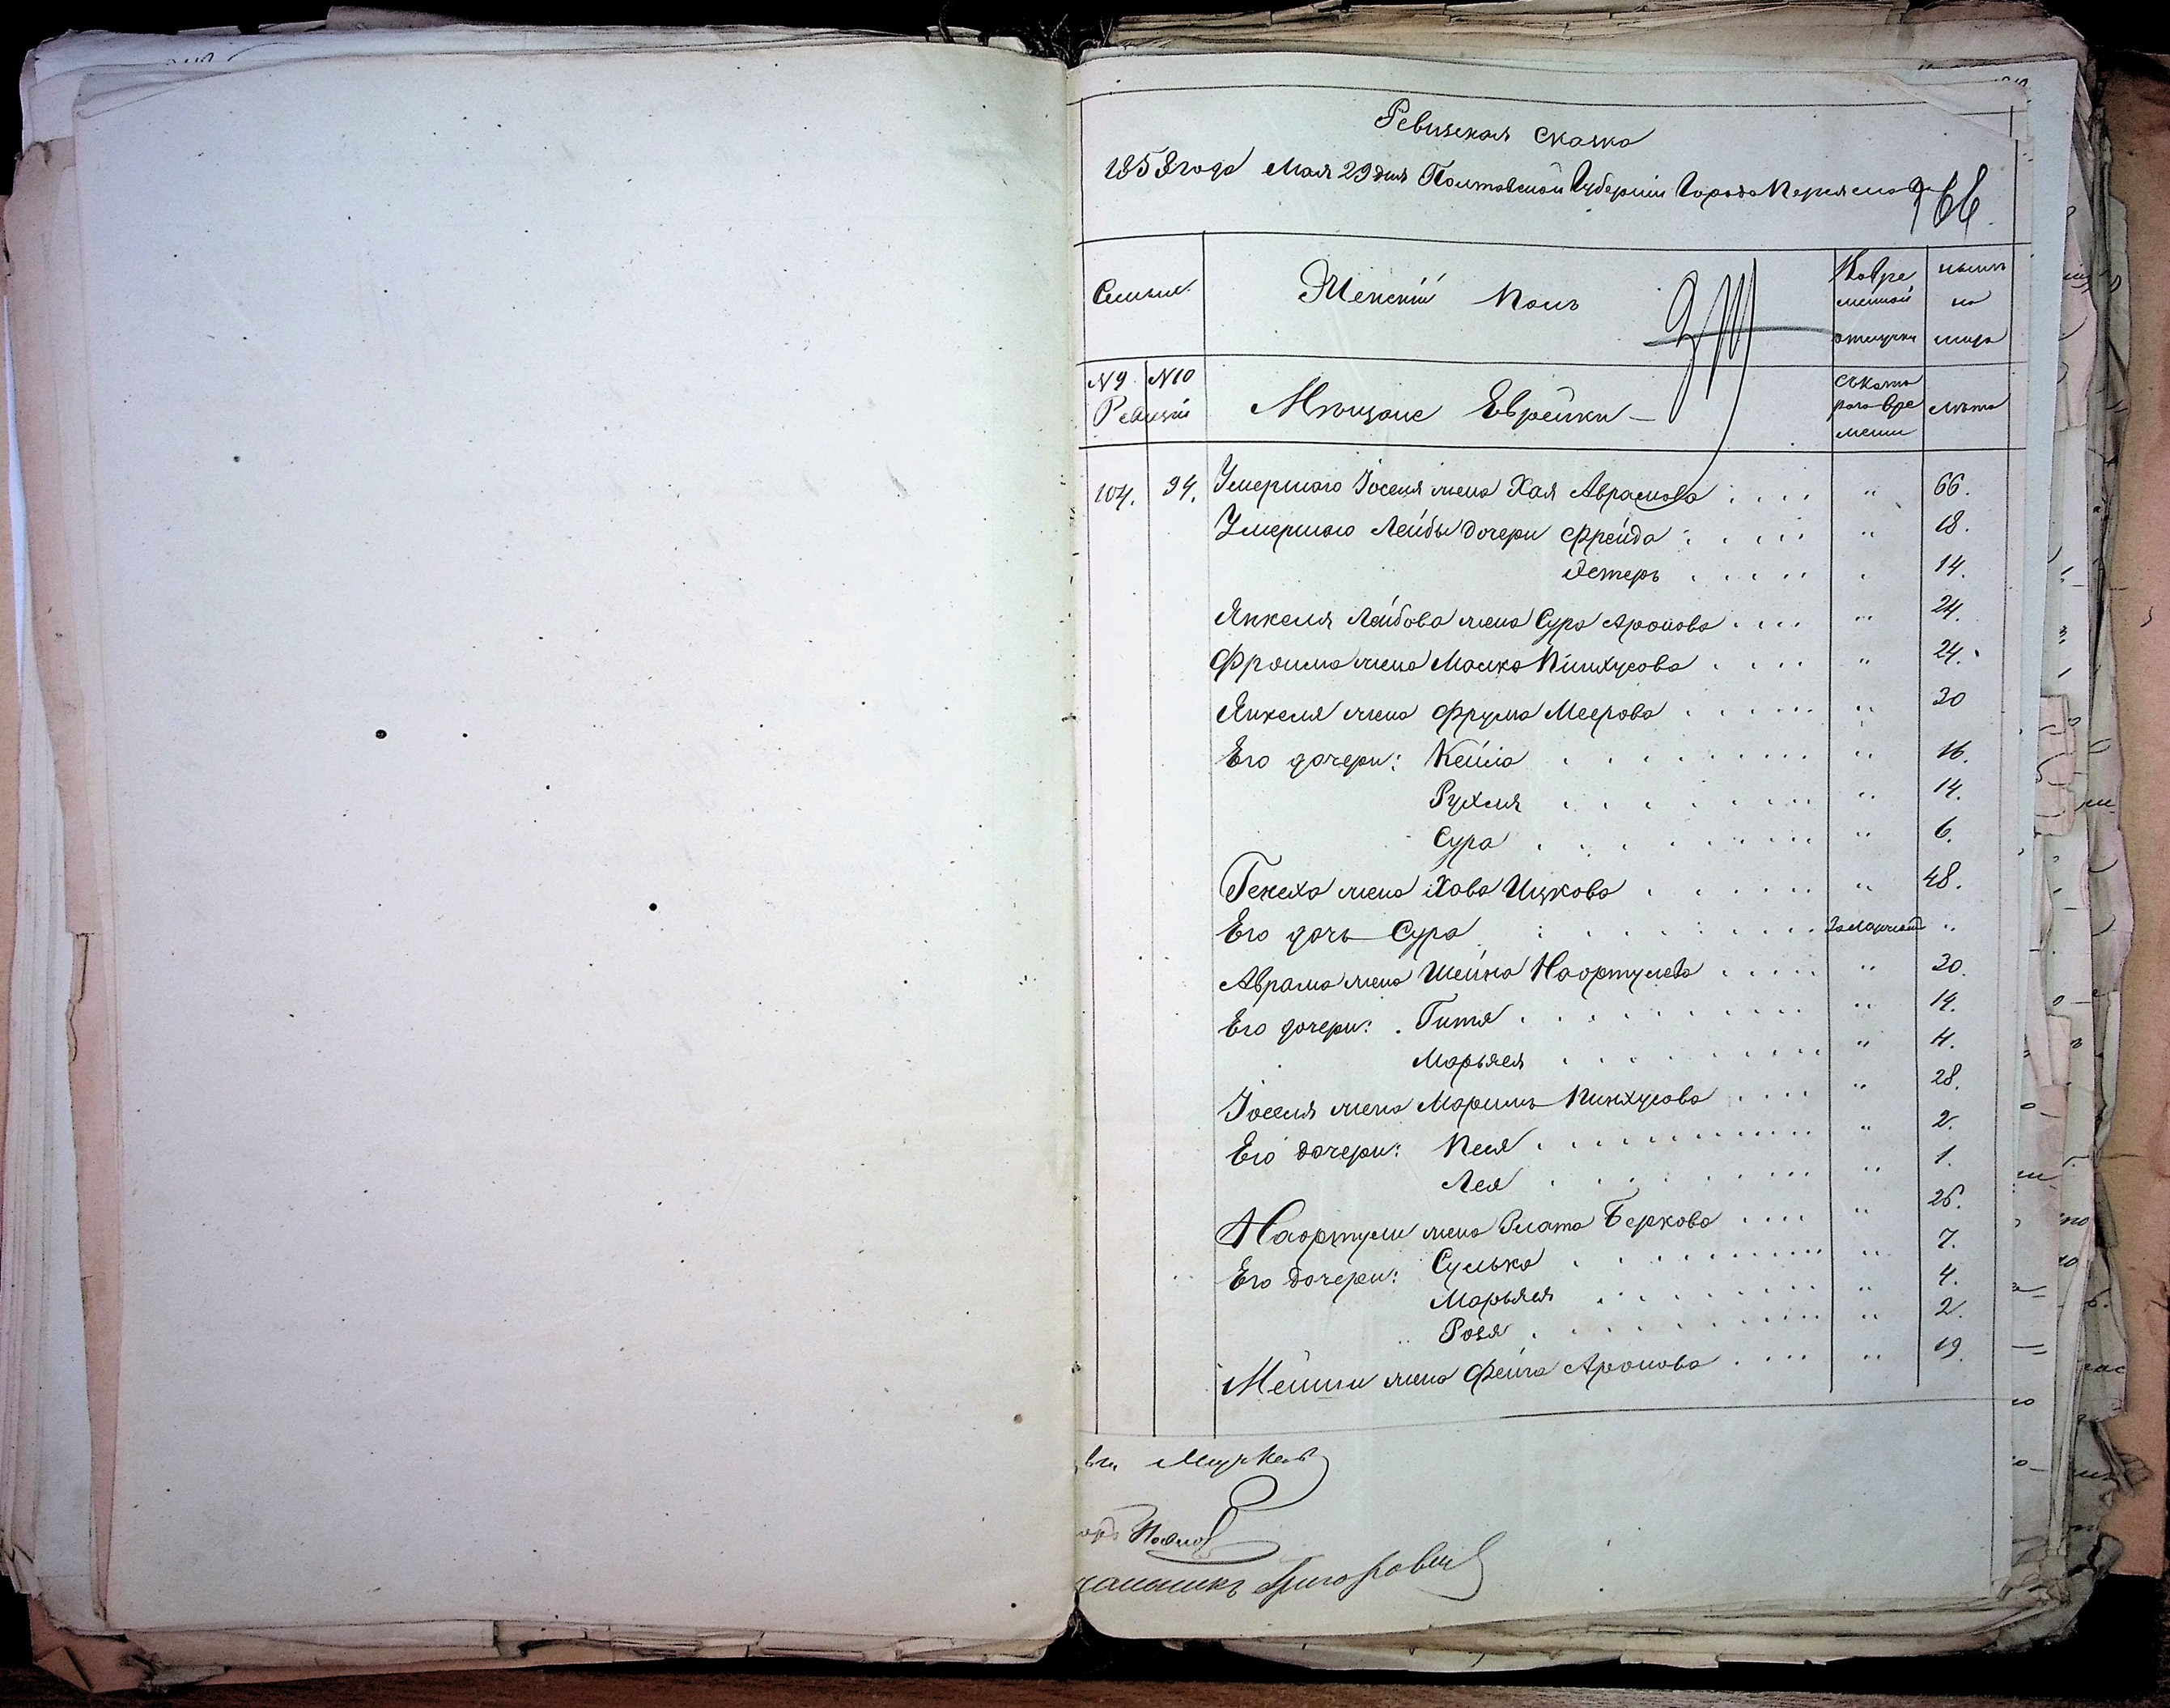 Ревизская сказка
1858 года Мая 29 дня Полтавской Губернии Города Переяслова
Семьи
Женский Полъ
Во вре
менной
отлучки
ныне
на
лицо
№9 №10
Ревизіи
Мещане Еврейки —
съ кото
раго вре
мени
лета
104. 94. Умершаго Іоселя жена Хая Аврамова 66.
Умершаго Лейбы дочери Фрейда 18.
Эстеръ 14.
Янкеля Лейбова жена Сура Аронова 24.
Фроима жена Малка Пинхусова 24.
Янкеля жена Фрума Меерова 30
Его дочери: Кейла 16.
Рухля 14.
Сура 6.
Генеха жена Хава Ицкова 48.
Его дочь Сура Замужемъ
Аврама жена Шейна Наортулева 30.
Его дочери: Гитя 14.
Марьяся 4.
Іоселя жена Маримъ Пинхусова 28.
Его дочери: Песя 2.
Лея 1.
Наортули жена Злата Беркова 26.
Его дочери: Сулька 7.
Марьяся 4.
Розя 2.
Мейши жена Фейга Аронова 19.
Григоровичъ